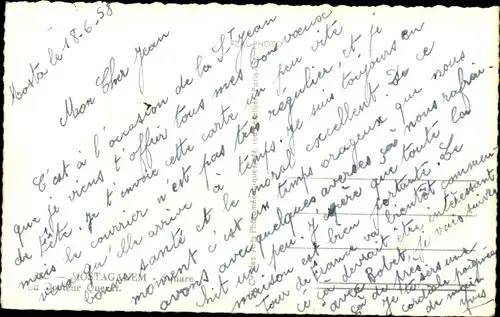 Mosta le 18-6-58
Mon Cher Jean
C'est à l'occasion de la St Jean
que je viens t'offrir tous mes bons voeux
de fête. Je t'envoie cette carte un peu vite
mais le courrier n'est pas très régulier, et je
veux qu'elle arrive à temps. Je suis toujours en
bonne santé et le moral excellent. De ce
moment c'est un temps orageux que nous
avons avec quelques averses ça nous rafraî-
chit un peu. J'espère que toute la
maison est bien portante. Le
Tour de France va bientôt commen-
cer ça devrait être intéressant
avec Bobet, je vais suivre
ça de près.
Je te serre une
cordiale poignée
de main
MOSTAGANEM - Square
du Docteur